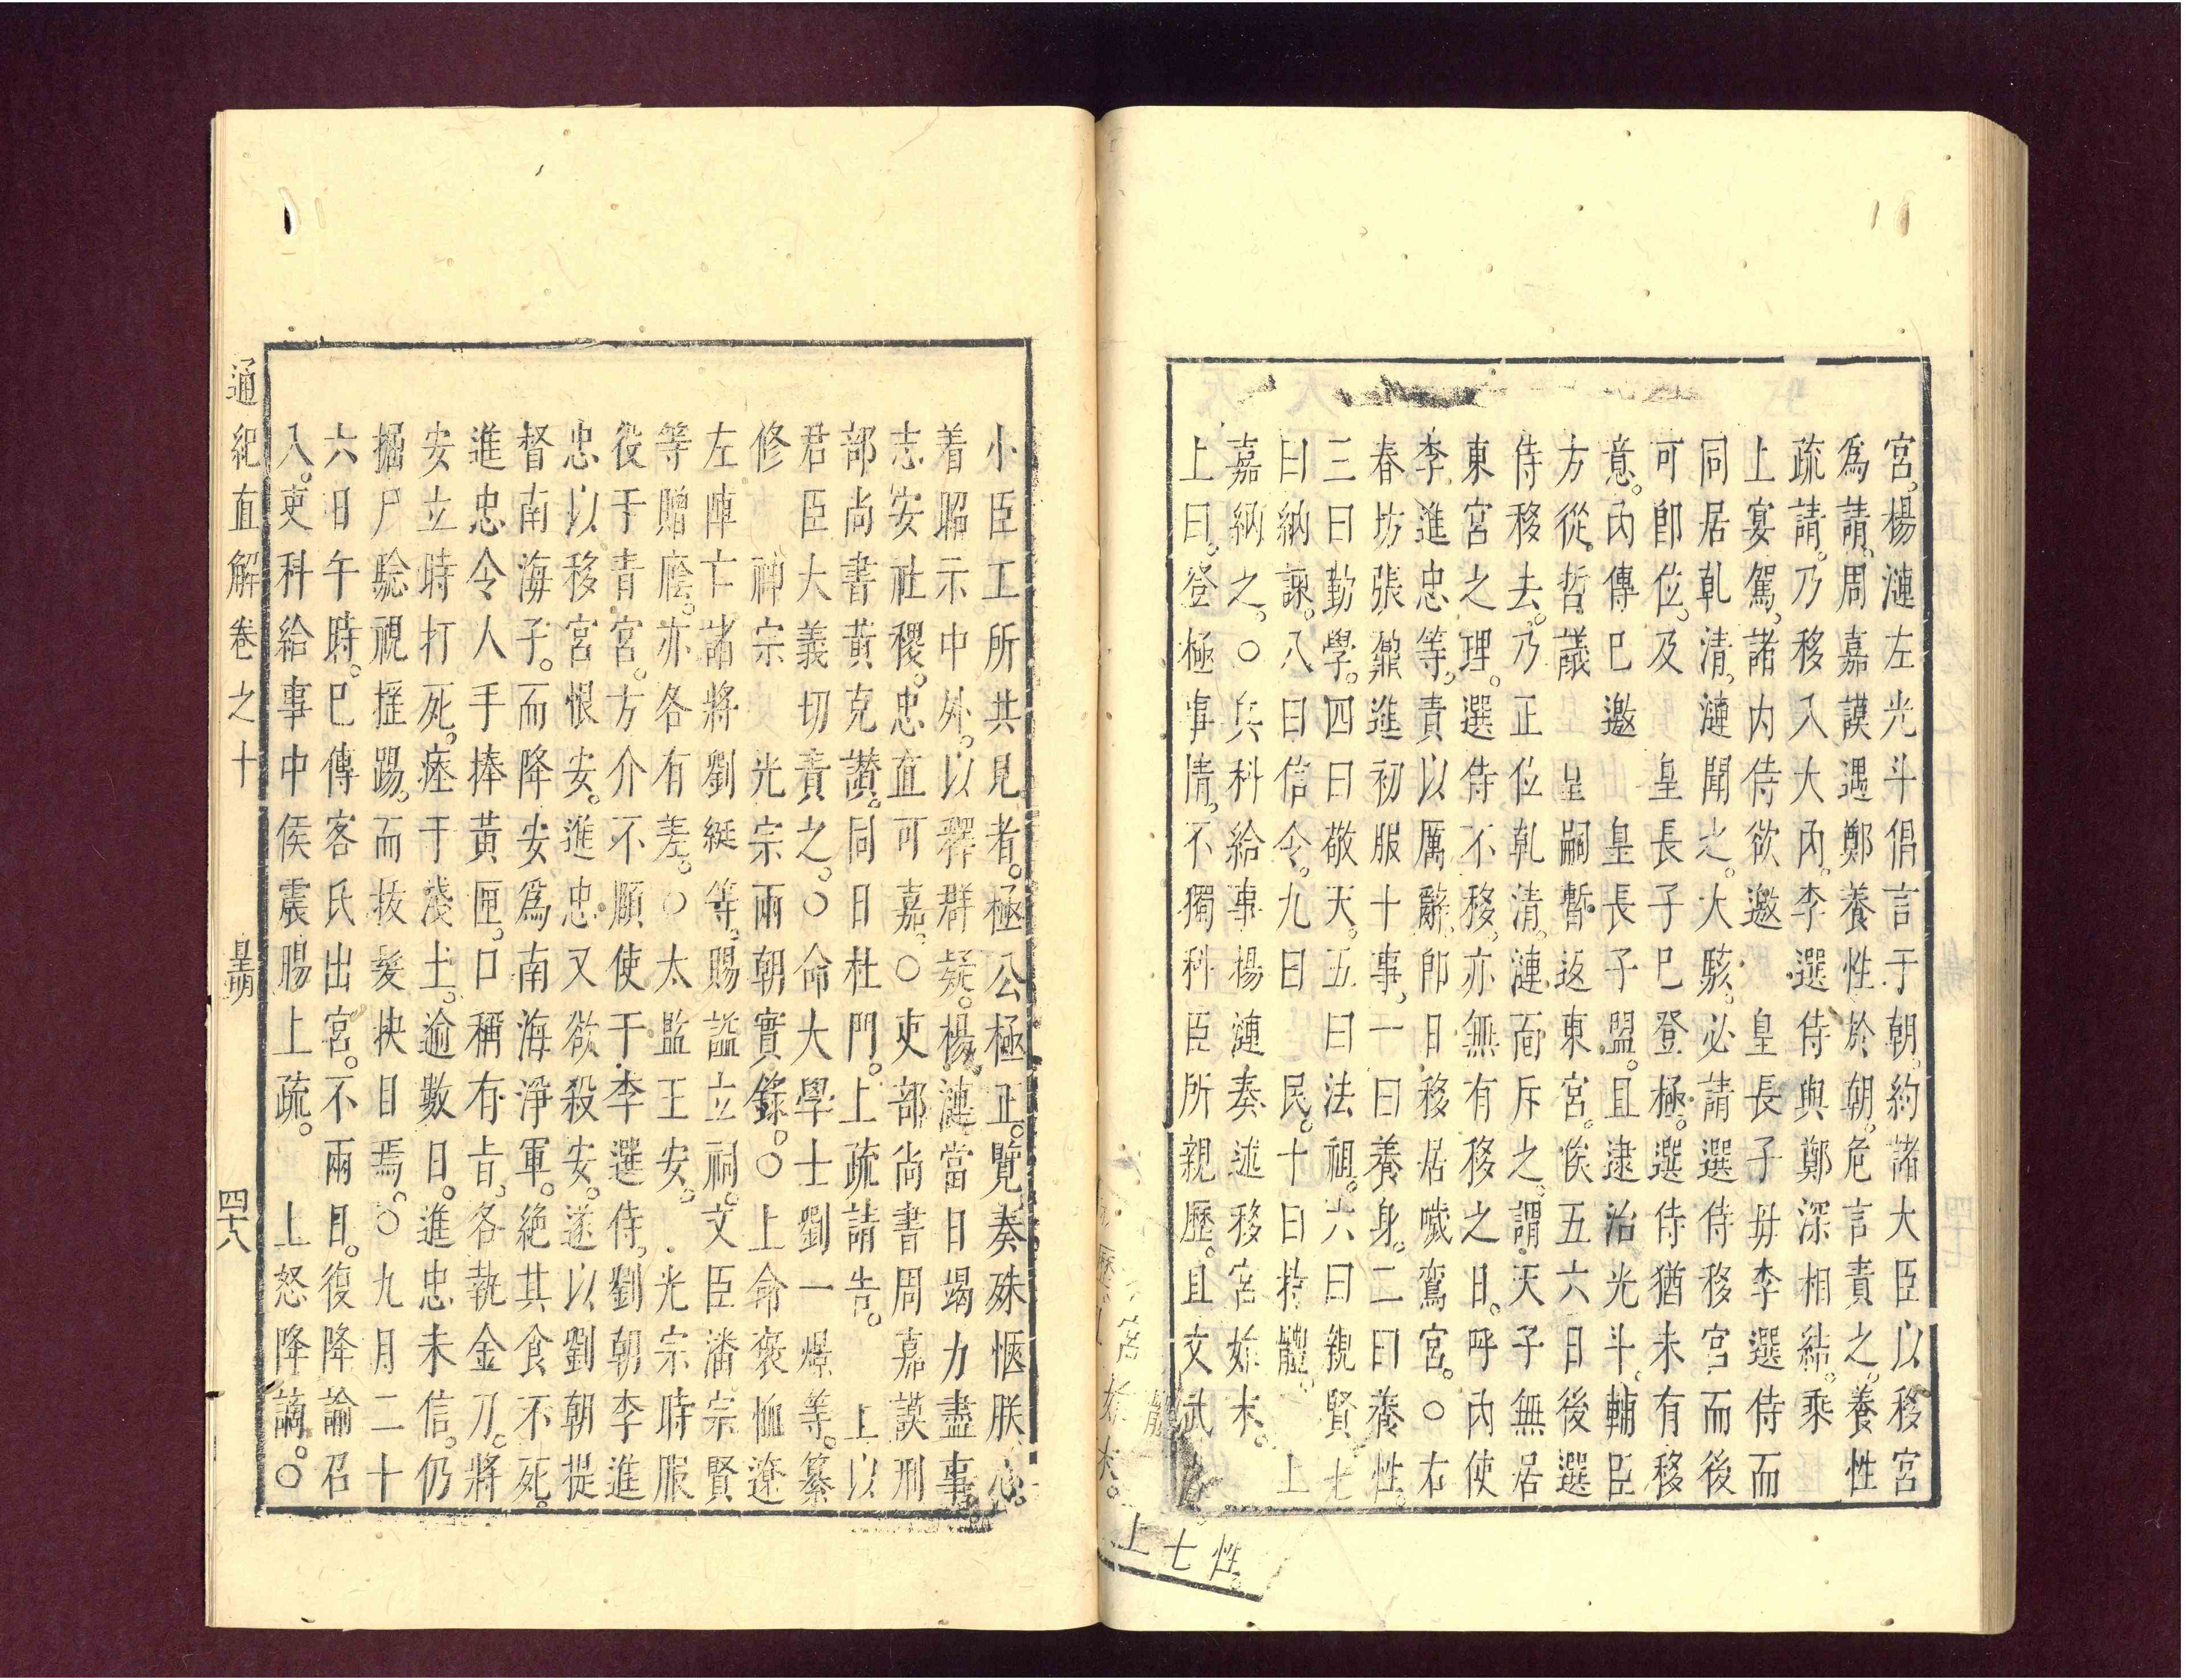 宮。楊漣左光斗倡言于朝。約諸大臣以移宮
爲請。周嘉謨遇鄭養性於朝。危言責之。養性
疏請。乃移入大內。李選侍與鄭深相結。乘
上宴駕。諸內侍欲邀　皇長子毋李選侍而
同居乹清。漣聞之。大駭。必請選侍移宮而後
可卽位。及　皇長子巳登極。選侍猶未有移
意。內傳巳邀　皇長子盟。且逮治光斗。輔臣
方從哲議　皇嗣暫返東宮。俟五六日後選
侍移去。乃正位乹清。漣面斥之。謂天子無居
東宮之理。選侍不移。亦無有移之日。呼內使
李進忠等。責以厲辭。卽日移居噦鸞宮。○右
春坊張鼐進初服十事。一曰養身。二曰養性。
三曰勤學。四曰敬天。五曰法祖。六曰親賢。七
曰納諫。八曰信令。九曰　民。十曰持體。　上
嘉納之。○兵科給事楊漣奏述移宮始末。
上曰。登極事情。不獨科臣所親歷。且文武
性。
七
上
小臣工所共見者。極公極正。覽奏殊愜朕心。
着昭示中外。以釋群疑。楊漣當日竭力盡事。
志安社稷。忠直可嘉。○吏部尚書周嘉謨刑
部尚書黃克讃。同日杜門。上疏請告。　上以
君臣大義切責之。○命大學士劉一燝等。纂
修　神宗　光宗兩朝實錄。○上命褒恤遼
左陣亡諸將劉綎等。賜謚立祠。文臣潘宗賢
等贈廕。亦各有差。○太監王安。光宗時服
役于青宮。方介不願使于李選侍。劉朝李進
忠以移宮恨安。進忠又欲殺安。遂以劉朝提
督南海子。而降安爲南海淨軍。絕其食不死。
進忠令人手捧黃匣。口稱有旨。各執金刀。將
安立時打死。瘞于淺土。逾數日。進忠未信。仍
掘尸驗視摧踢。而抜髮抉目焉。○九月二十
六日午時。巳傳客氏出宮。不兩日。復降諭召
入。吏科給事中侯震暘上疏。　上怒降謫。○
通紀直解卷之十　皇明　四十八